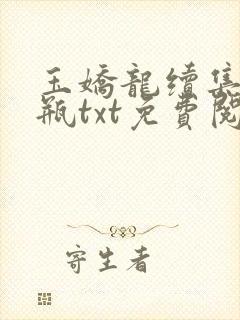 玉嬌龍續集
瓶txt免費閱
寄生者